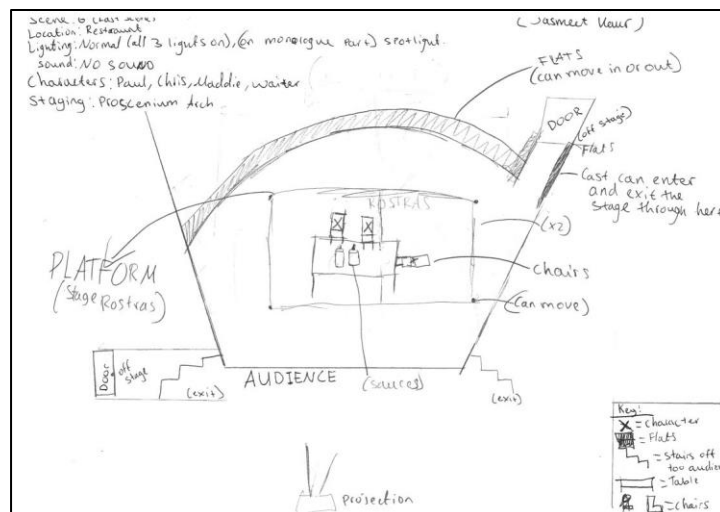 Scene: 6 (Last scene)
(Jasmeet Kaur)
Location: Restaurant
Lighting: Normal (all 3 lights on), (on monologue part) spotlight.
sound: NO SOUND
Characters: Paul, Chris, Maddie, waiter
Staging: Proscenium Arch
FLATS
(can move in or out)
DOOR
(off stage)
Flats
Cast can enter
and exit the
stage through here
ROSTRAS
(x2)
PLATFORM
(Stage Rostras)
chairs
(can move)
Door
off
stage
(exit)
AUDIENCE
(sauces)
(exit)
projection
Key:
X = character
= Flats
= stairs off
too audien
= Table
= chairs